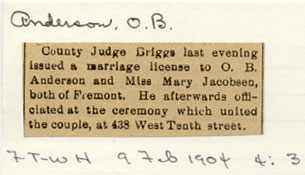 Anderson, O. B.
County Judge Briggs last evening
issued a marriage license to O. B.
Anderson and Miss Mary Jacobsen,
both of Fremont. He afterwards offi-
ciated at the ceremony which united
the couple, at 438 West Tenth street.
7 T-W H 9 Feb 1904 4: 3